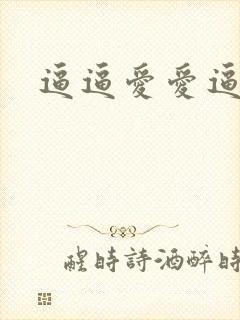 逼逼愛愛逼
醒時詩酒醉時